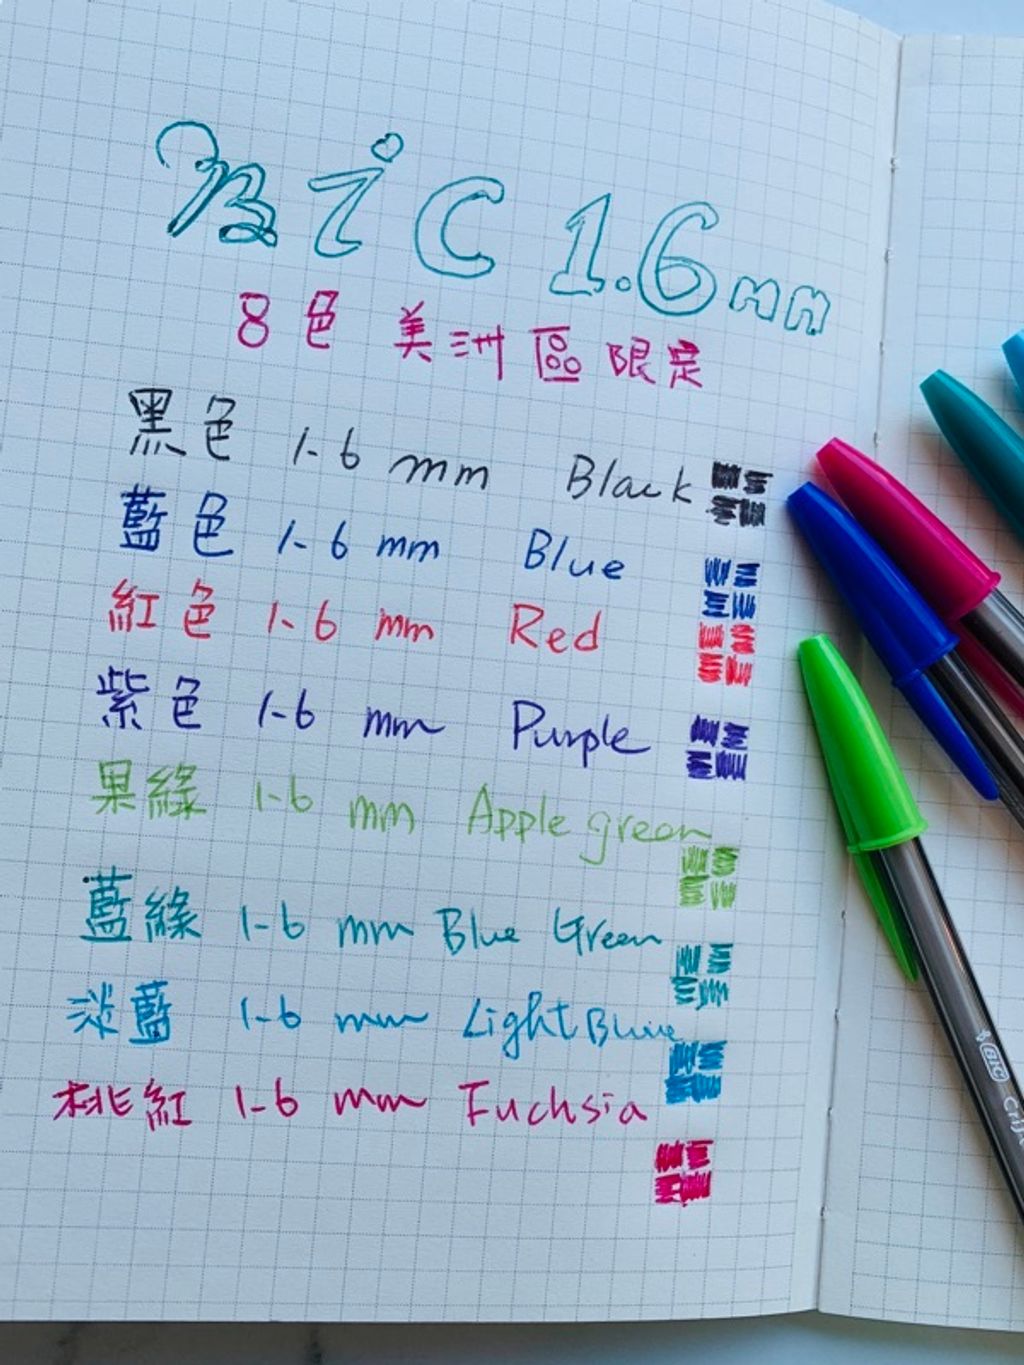 BiC 1.6mm
8色 美洲區限定
黑色 1.6 mm Black
藍色 1.6 mm Blue
紅色 1.6 mm Red
紫色 1.6 mm Purple
果綠 1.6 mm Apple green
藍綠 1.6 mm Blue Green
淡藍 1.6 mm Light Blue
桃紅 1.6 mm Fuchsia
BIC